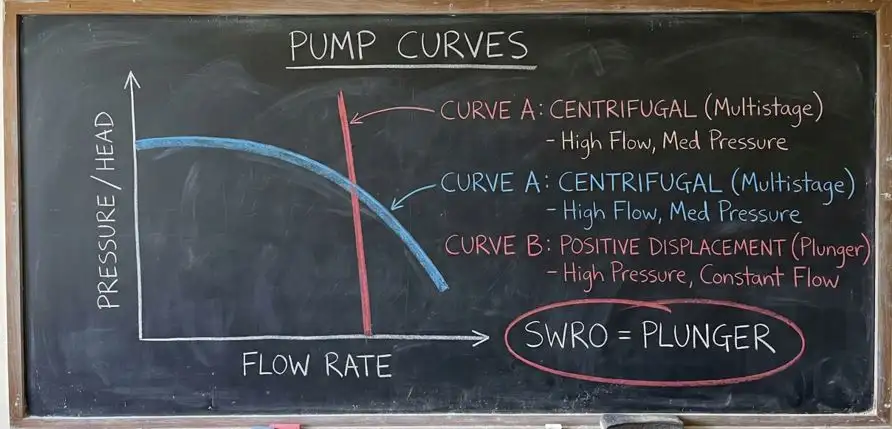 PUMP CURVES
PRESSURE/HEAD
CURVE A: CENTRIFUGAL (Multistage)
- High Flow, Med Pressure
CURVE A: CENTRIFUGAL (Multistage)
- High Flow, Med Pressure
CURVE B: POSITIVE DISPLACEMENT (Plunger)
- High Pressure, Constant Flow
SWRO = PLUNGER
FLOW RATE